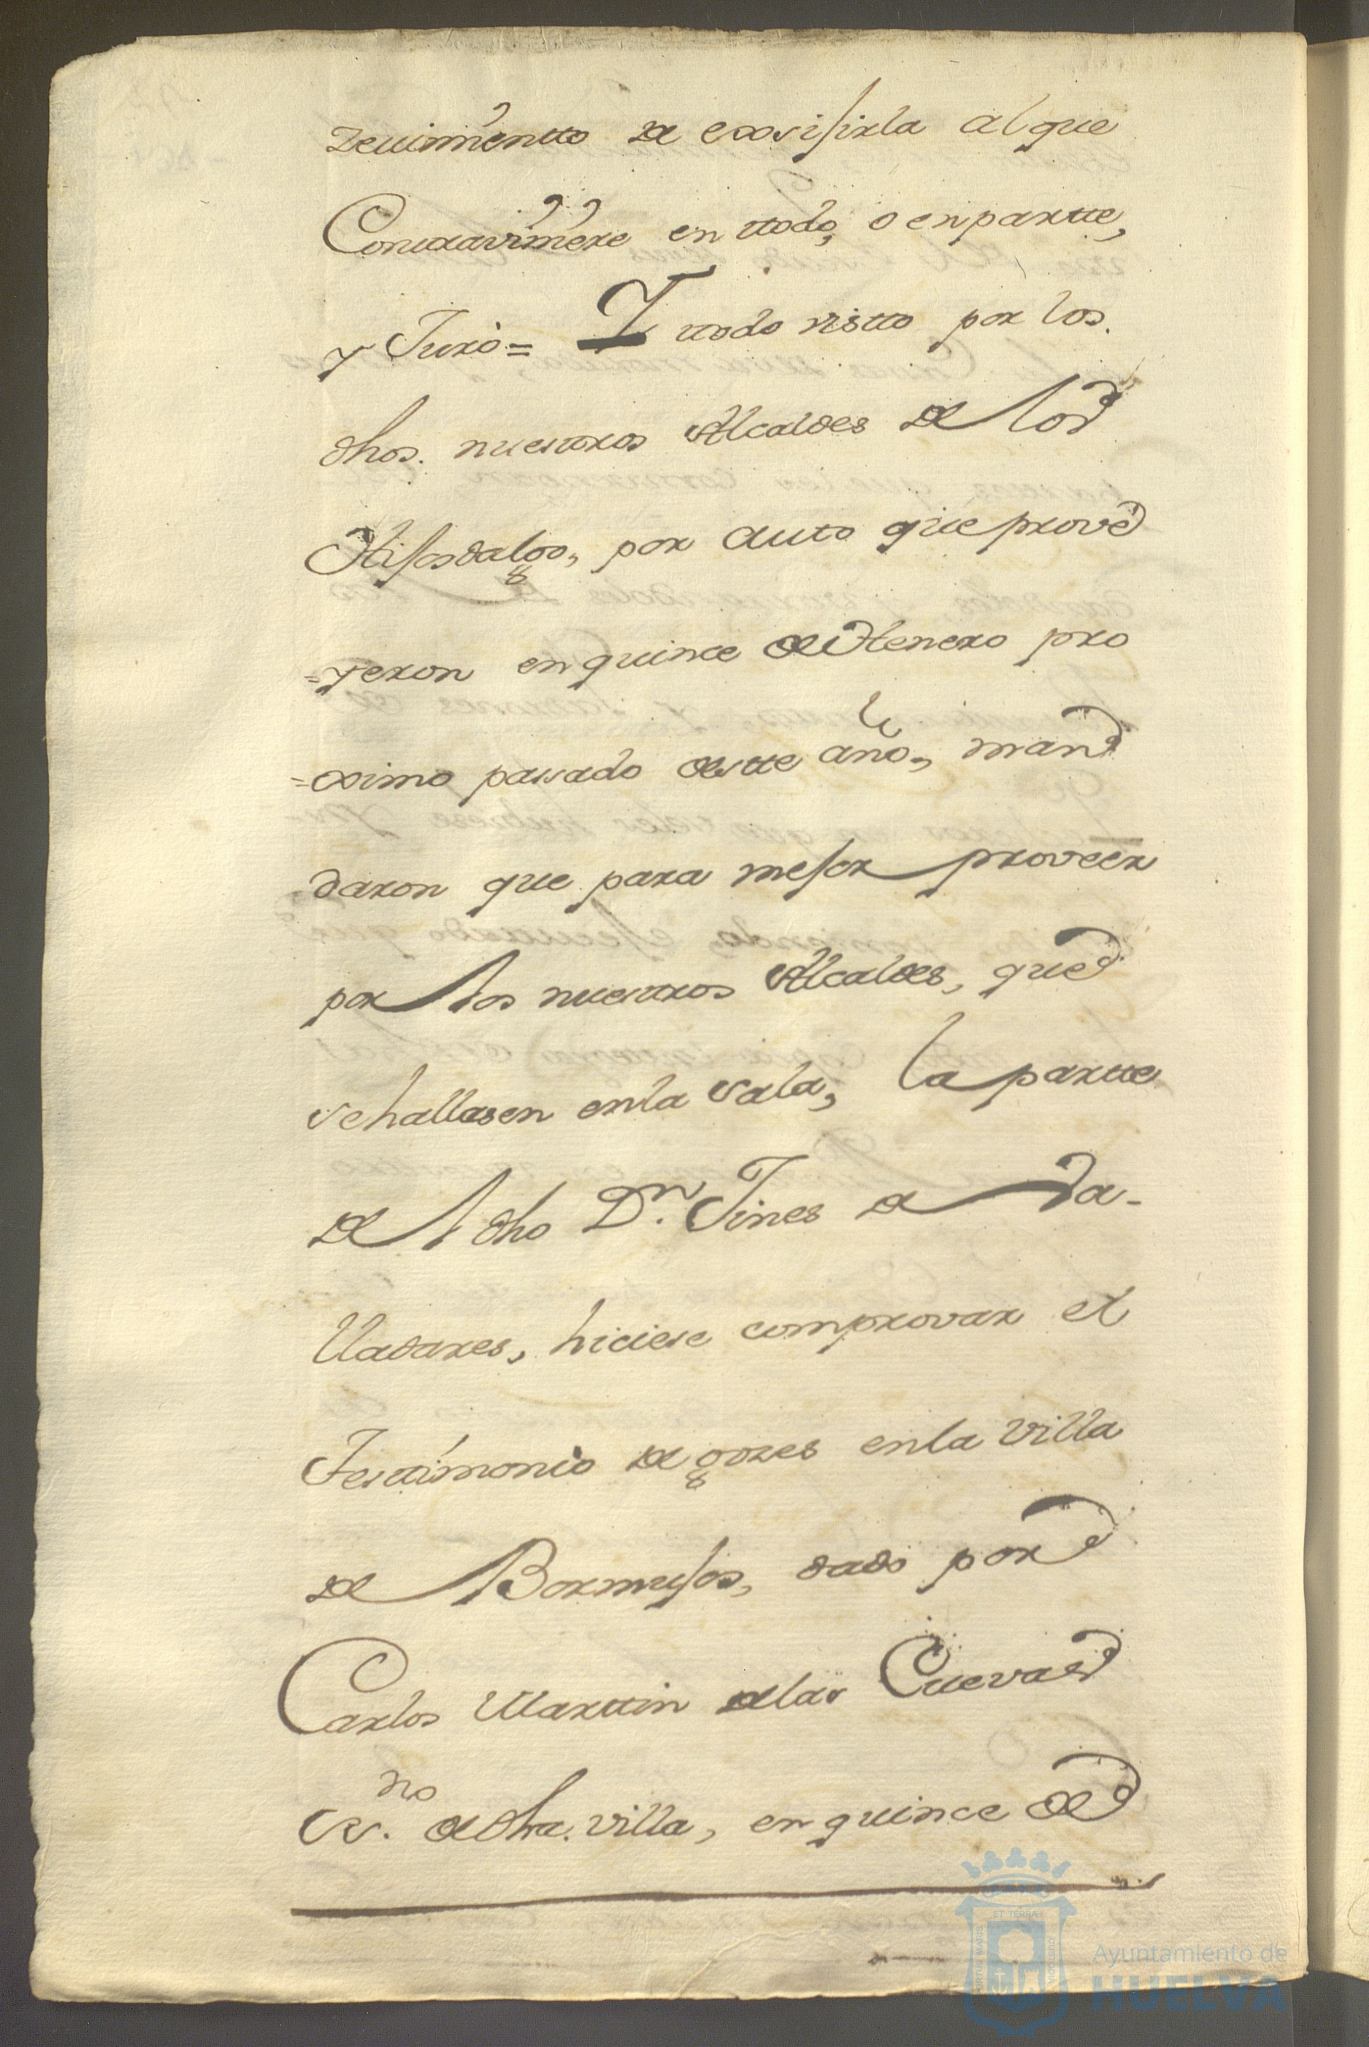 zevimientto de exsisirla al que
Conttraviniere en ttodo, o en partte,
y Juró = Y ttodo vistto por los
dhos. nuesttros Alcaldes de los
Hijosdalgo, por auto que prove
=yeron en quince de Henero pro
=ximo passado destte año, man
daron que para mejor proveer
por los nuesttros Alcaldes, que
se hallasen en la sala, la partte
de el dho Dn. Jines de Va-
lladares, hiciese comprovar el
Testtimonio de gozes en la villa
de Bormujos, dado por
Carlos Marttin de las Cuevas
Ssno. de dha. villa, en quince de
Ayuntamiento de
HUELVA